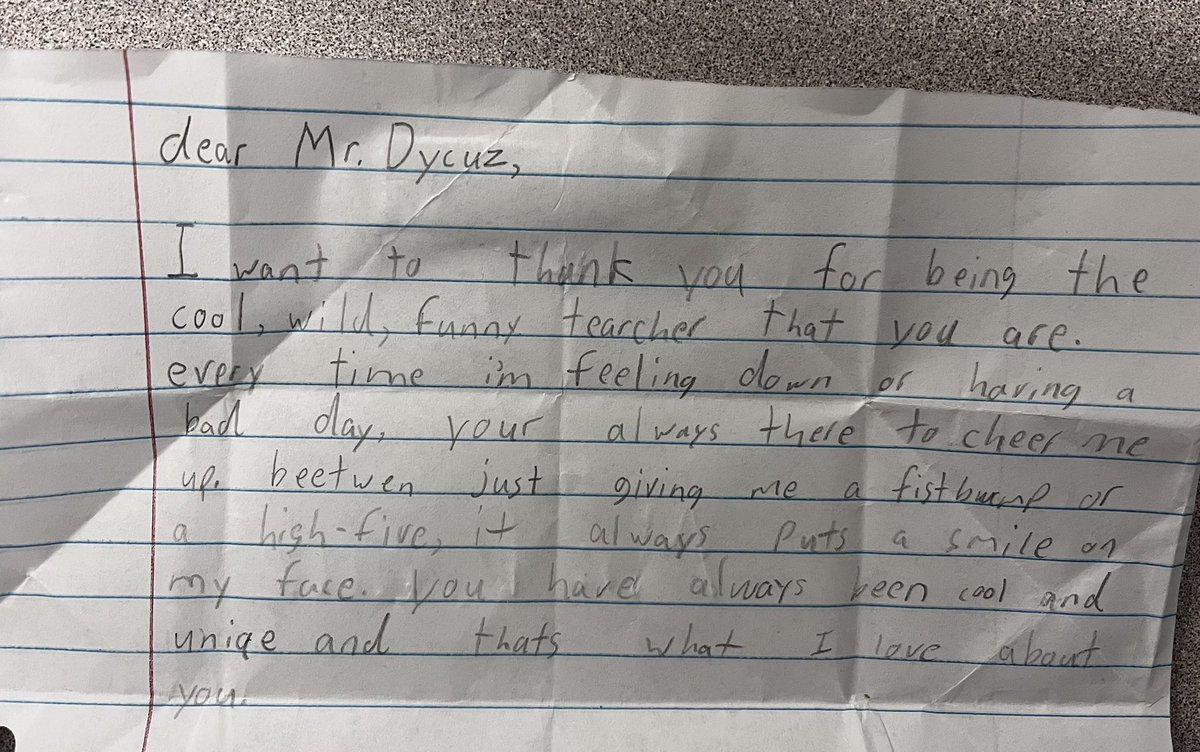 dear Mr. Dycuz,
I want to thank you for being the
cool, wild, funny tearcher that you are.
every time i'm feeling down or having a
bad day, your always there to cheer me
up. beetwen just giving me a fistbump or
a high-five, it always puts a smile on
my face. you have always been cool and
uniqe and thats what I love about
you.